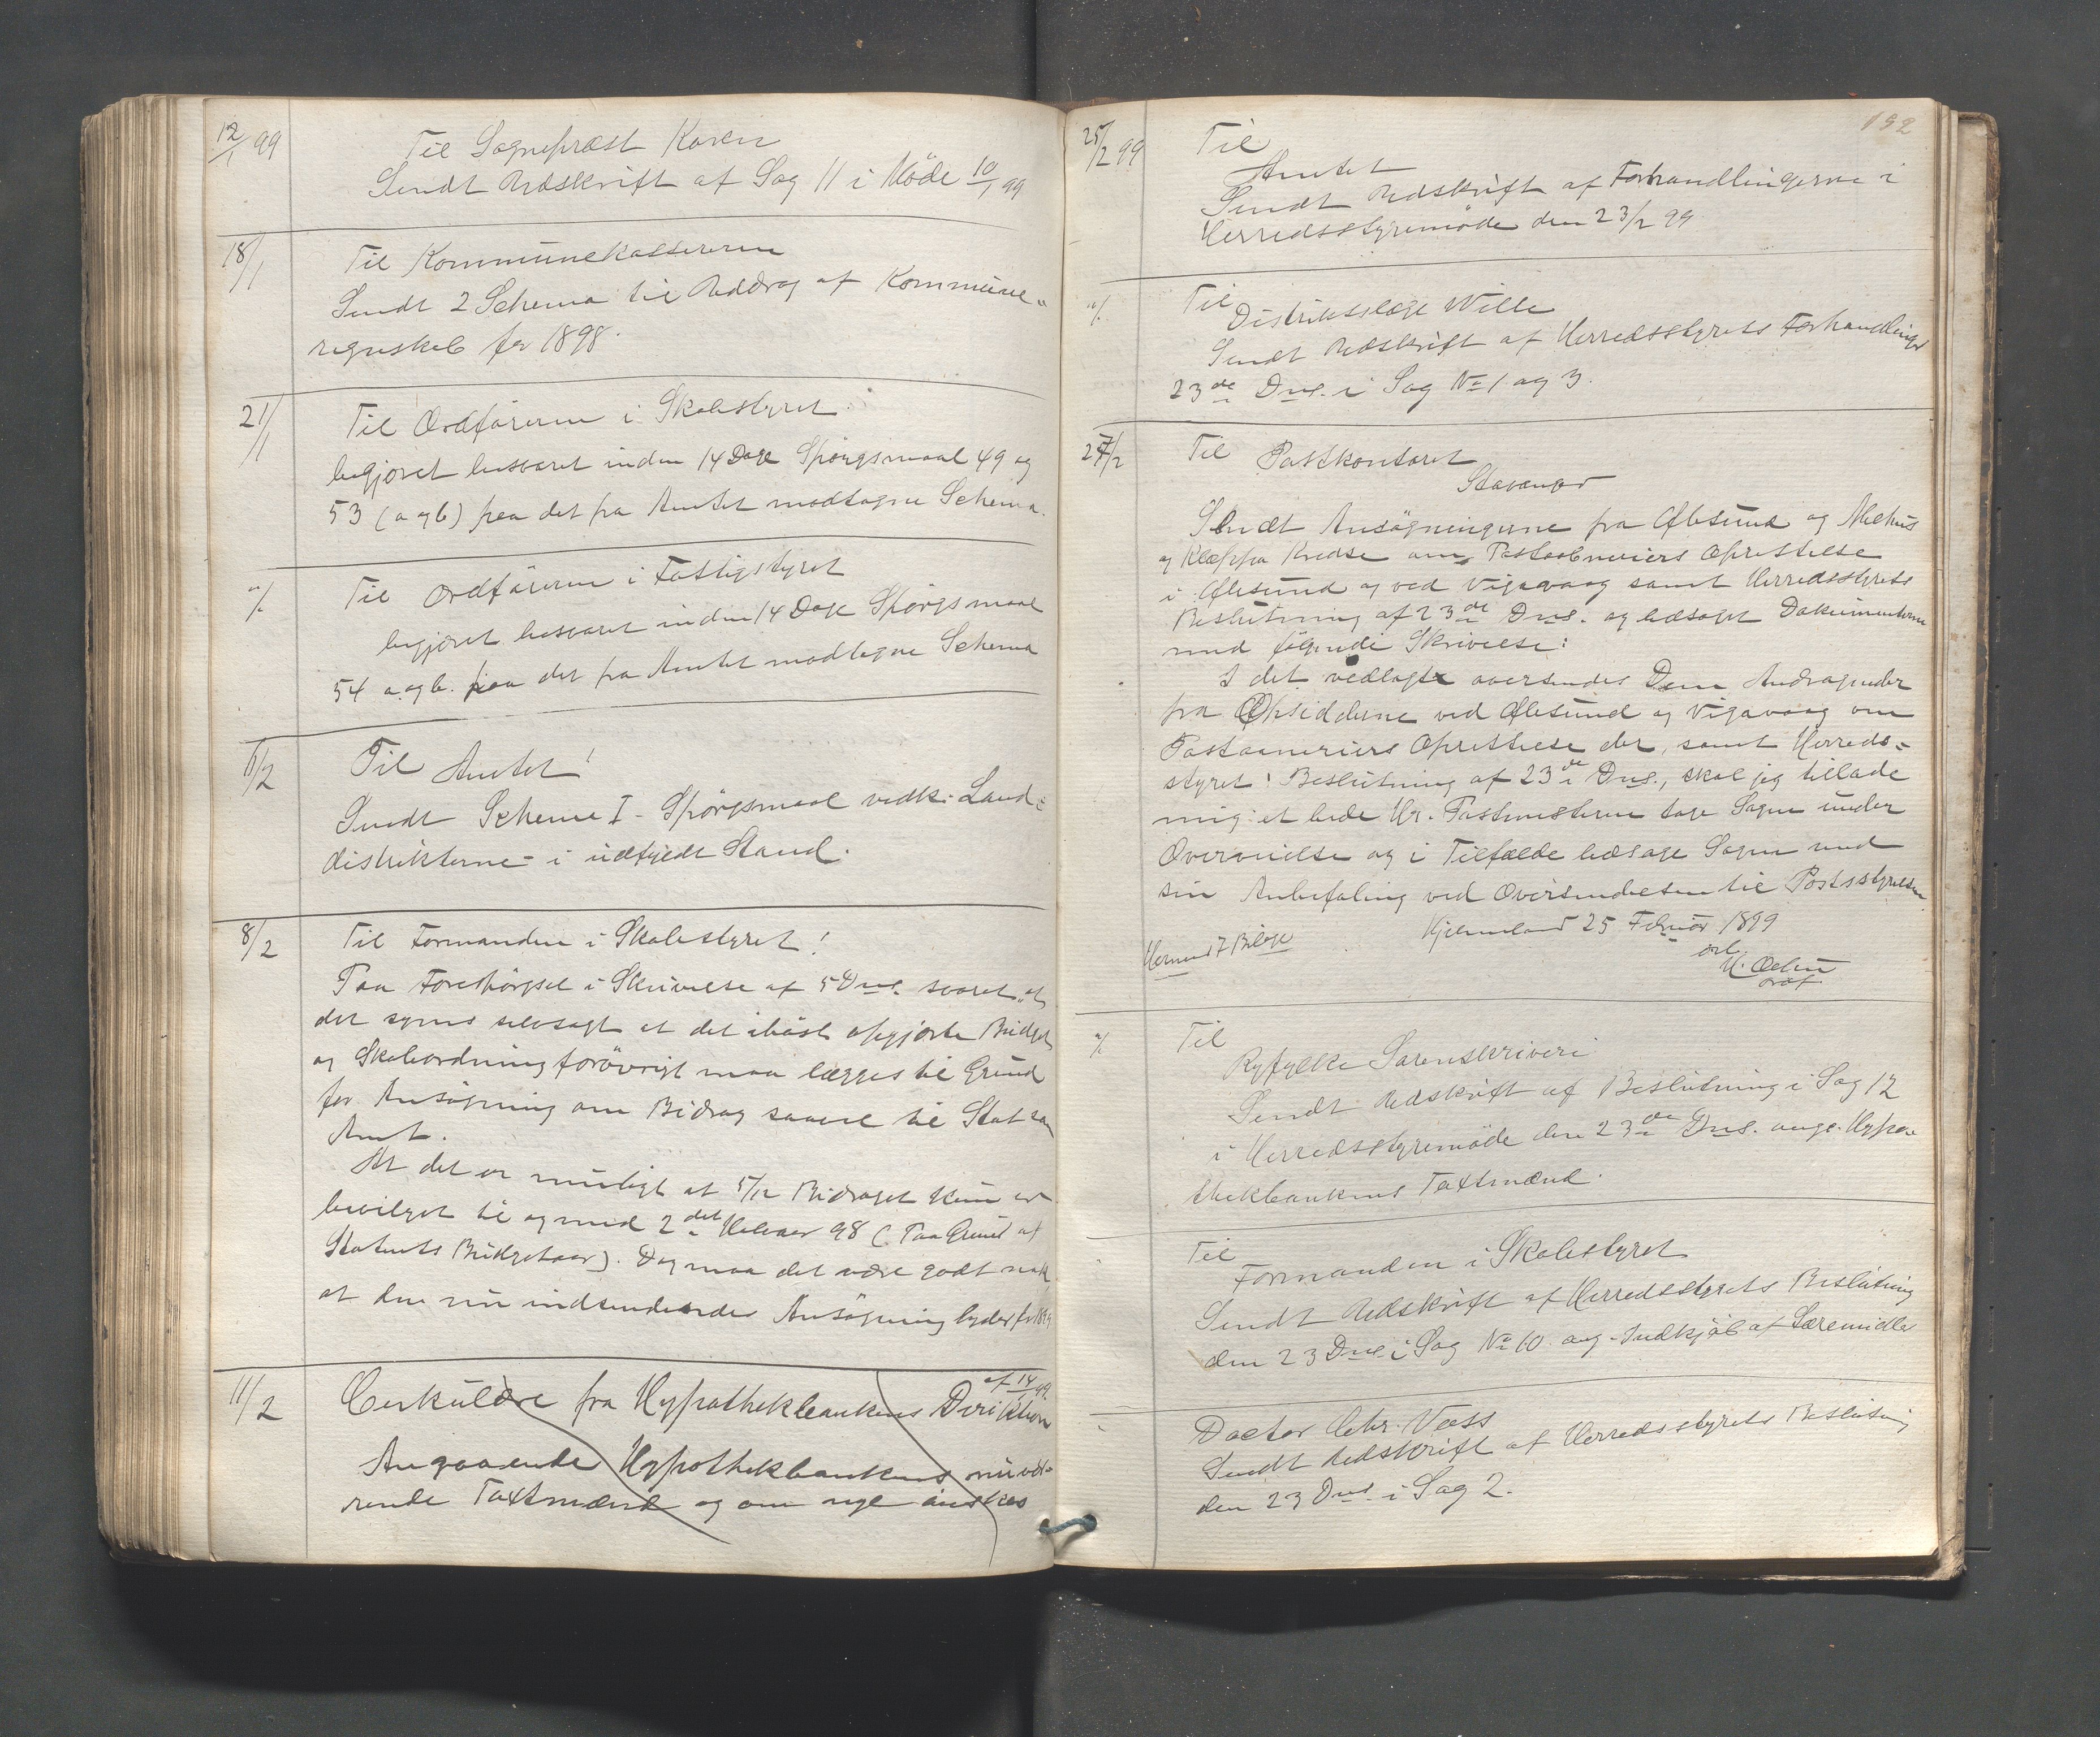 12/1 99
Til Sogneprest Koren
Sendt Udskrift af Sag 11 i Möde 10/1 99
18/1
Til Kommunekassereren
Sendt 2 Schema til Uddrag af Kommune-
regnskab for 1898.
21/1
Til Ordföreren i Skolestyret
begjæret besvaret inden 14 Dage Spörgsmaal 49 og
53 (a og b) paa det fra Amtet modtagne Schema.
"/"
Til Ordföreren i Fattigstyret
begjæret besvaret inden 14 Dage Spörgsmaal
54 a. og b. paa det fra Amtet modtagne Schema
6/2
Til Amtet!
Sendt Schema I - Spörgsmaal vedk. Land-
distrikterne - i udfyldt Stand.
8/2
Til Formanden i Skolestyret!
Paa Forespörgsel i Skrivelse af 5 Dns. svaret at
det synes selvsagt at det ihöst opgjorte Budget
og Skoleordning forövrigt maa lægges til Grund
for Ansögning om Bidrag saavel til Stat som
Amt.
At det er muligt at 5/12 Bidraget kun er
bevilget til og med 2det Halvaar 98 (Paa Grund af
Statens Budgetaar). Dog maa det være godt nok
at den nu indsendende Ansögning lyder for 1899
11/2
Cirkulære fra Hypothekbankens Direktion af 14/1 99.
Angaaende Hypothekbankens nuvæ-
rende Taxtmænd og om nye önskes
192
25/2 99
Til
Amtet
Sendt Udskrift af Forhandlingerne i
Herredsstyremöde den 23/2 99
"/"
Til
Distriktslæge Wille
Sendt Udskrift af Herredsstyrets Forhandlinger
23de Dns. i Sag No 1 og 3.
27/2
Til Postkontoret
Stavanger
Sendt Ansögningerne fra Ölesund og
og Kleppa Kredse om Postaabneriers Oprettelse
i Ölesund og ved Vigavaag samt Herredsstyrets
Beslutning af 23de Dns. og ledsaget Dokumenterne
med fölgende Skrivelse:
I det vedlagte oversendes Dem Andragender
fra Opsidderne ved Ölesund og Vigavaag om
Postaabneriers Oprettelse der, samt Herreds-
styrets Beslutning af 23de Dns., skal jeg tillade
mig at bede Hr. Postmesteren tage Sagen under
Overveielse og i Tilfælde ledsage Sagen med
sin Anbefaling ved Oversendelsen til Poststyrelsen
Hjelmeland 25 Februar 1899
Hermed 7 Bilage
Ordf.
"/"
Til
Ryfylke Sorenskriveri
Sendt Udskrift af Beslutning i Sag 12
i Herredsstyremöde den 23de Dns. ang. Hypo-
thekbankens Taxtmænd.
Til
Formanden i Skolestyret
Sendt Udskrift af Herredsstyrets Beslutning
den 23 Dns. i Sag No 10 ang. Indkjöb af Læremidler
Doctor Chr. Vass
Sendt Udskrift af Herredsstyrets Beslutning
den 23 Dns. i Sag 2.